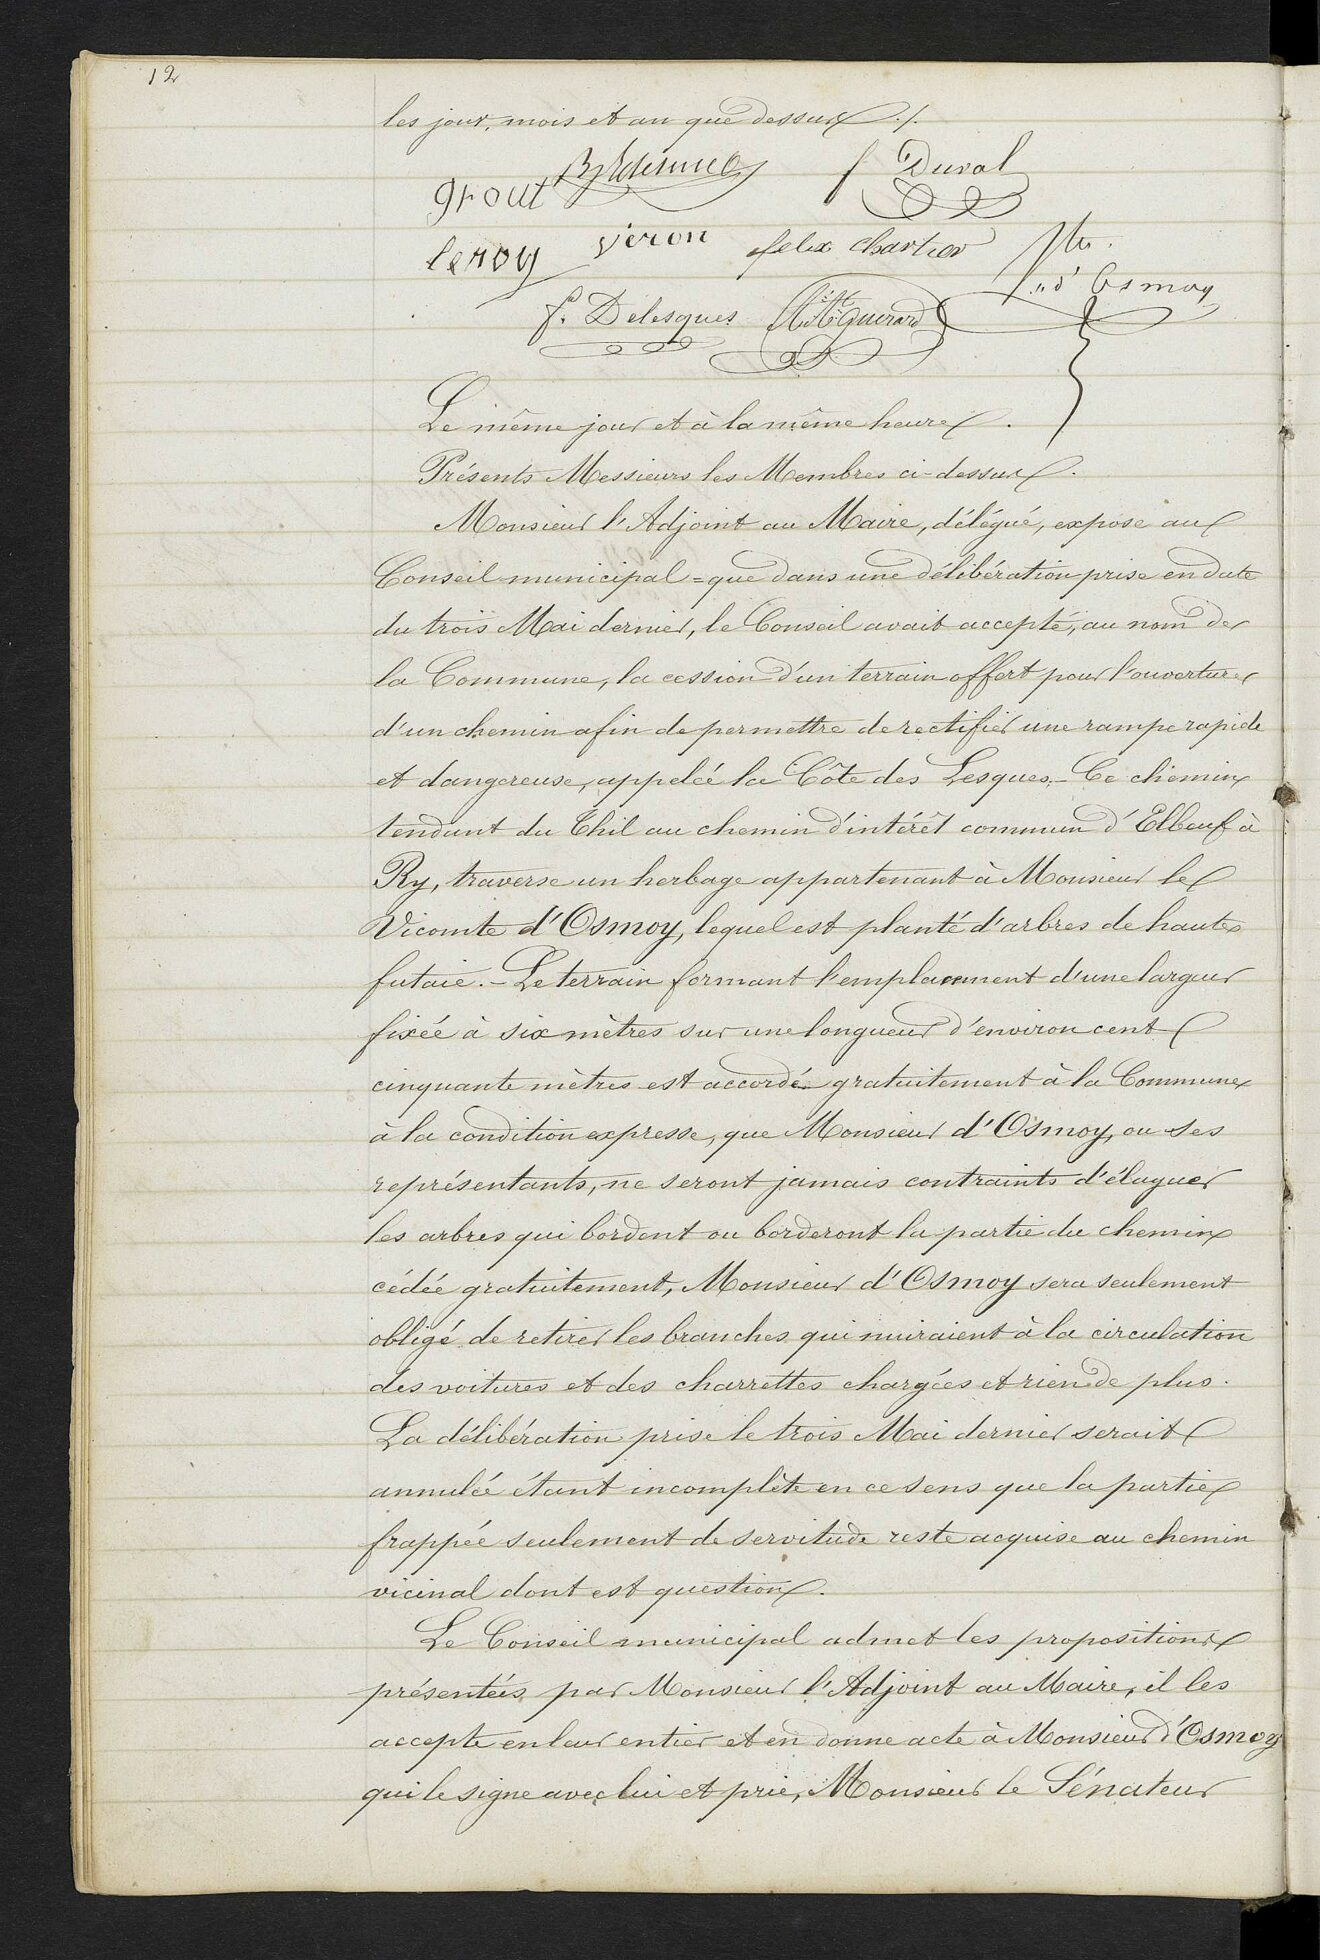 12
les jour, mois et an que dessus ./.
grout f Duval
leroy veron felix chartier Vte.
d'Osmoy
f. Delesques Guerard
Le même jour et à la même heure.
Présents Messieurs les Membres ci-dessus.
Monsieur l'Adjoint au Maire, délégué, expose au
Conseil municipal = que dans une délibération prise en date
du trois Mai dernier, le Conseil avait accepté, au nom de
la Commune, la cession d'un terrain offert pour l'ouverture
d'un chemin afin de permettre de rectifier une rampe rapide
et dangereuse, appelée la Côte des Lesques. - Ce chemin
tendant du Thil au chemin d'intérêt commun d'Elbeuf à
Ry, traverse un herbage appartenant à Monsieur le
Vicomte d'Osmoy, lequel est planté d'arbres de haute
futaie. - Le terrain formant l'emplacement d'une largeur
fixée à six mètres sur une longueur d'environ cent
cinquante mètres est accordé gratuitement à la Commune
à la condition expresse, que Monsieur d'Osmoy, ou ses
représentants, ne seront jamais contraints d'élaguer
les arbres qui bordent ou borderont la partie du chemin
cédée gratuitement, Monsieur d'Osmoy sera seulement
obligé de retirer les branches qui nuiraient à la circulation
des voitures et des charrettes chargées et rien de plus.
La délibération prise le trois Mai dernier serait
annulée étant incomplète en ce sens que la partie
frappée seulement de servitude reste acquise au chemin
vicinal dont est question.
Le Conseil municipal admet les propositions
présentées par Monsieur l'Adjoint au Maire, il les
accepte en leur entier et en donne acte à Monsieur d'Osmoy
qui le signe avec lui et prie, Monsieur le Sénateur